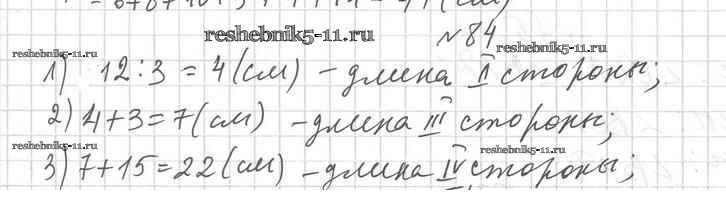 reshebnik5-11.ru
№84
reshebnik5-11.ru
reshebnik5-11.ru
1) 12:3=4(см) – длина II стороны;
2) 4+3=7(см) – длина III стороны;
reshebnik5-11.ru
reshebnik5-11.ru
3) 7+15=22(см) – длина IV стороны;